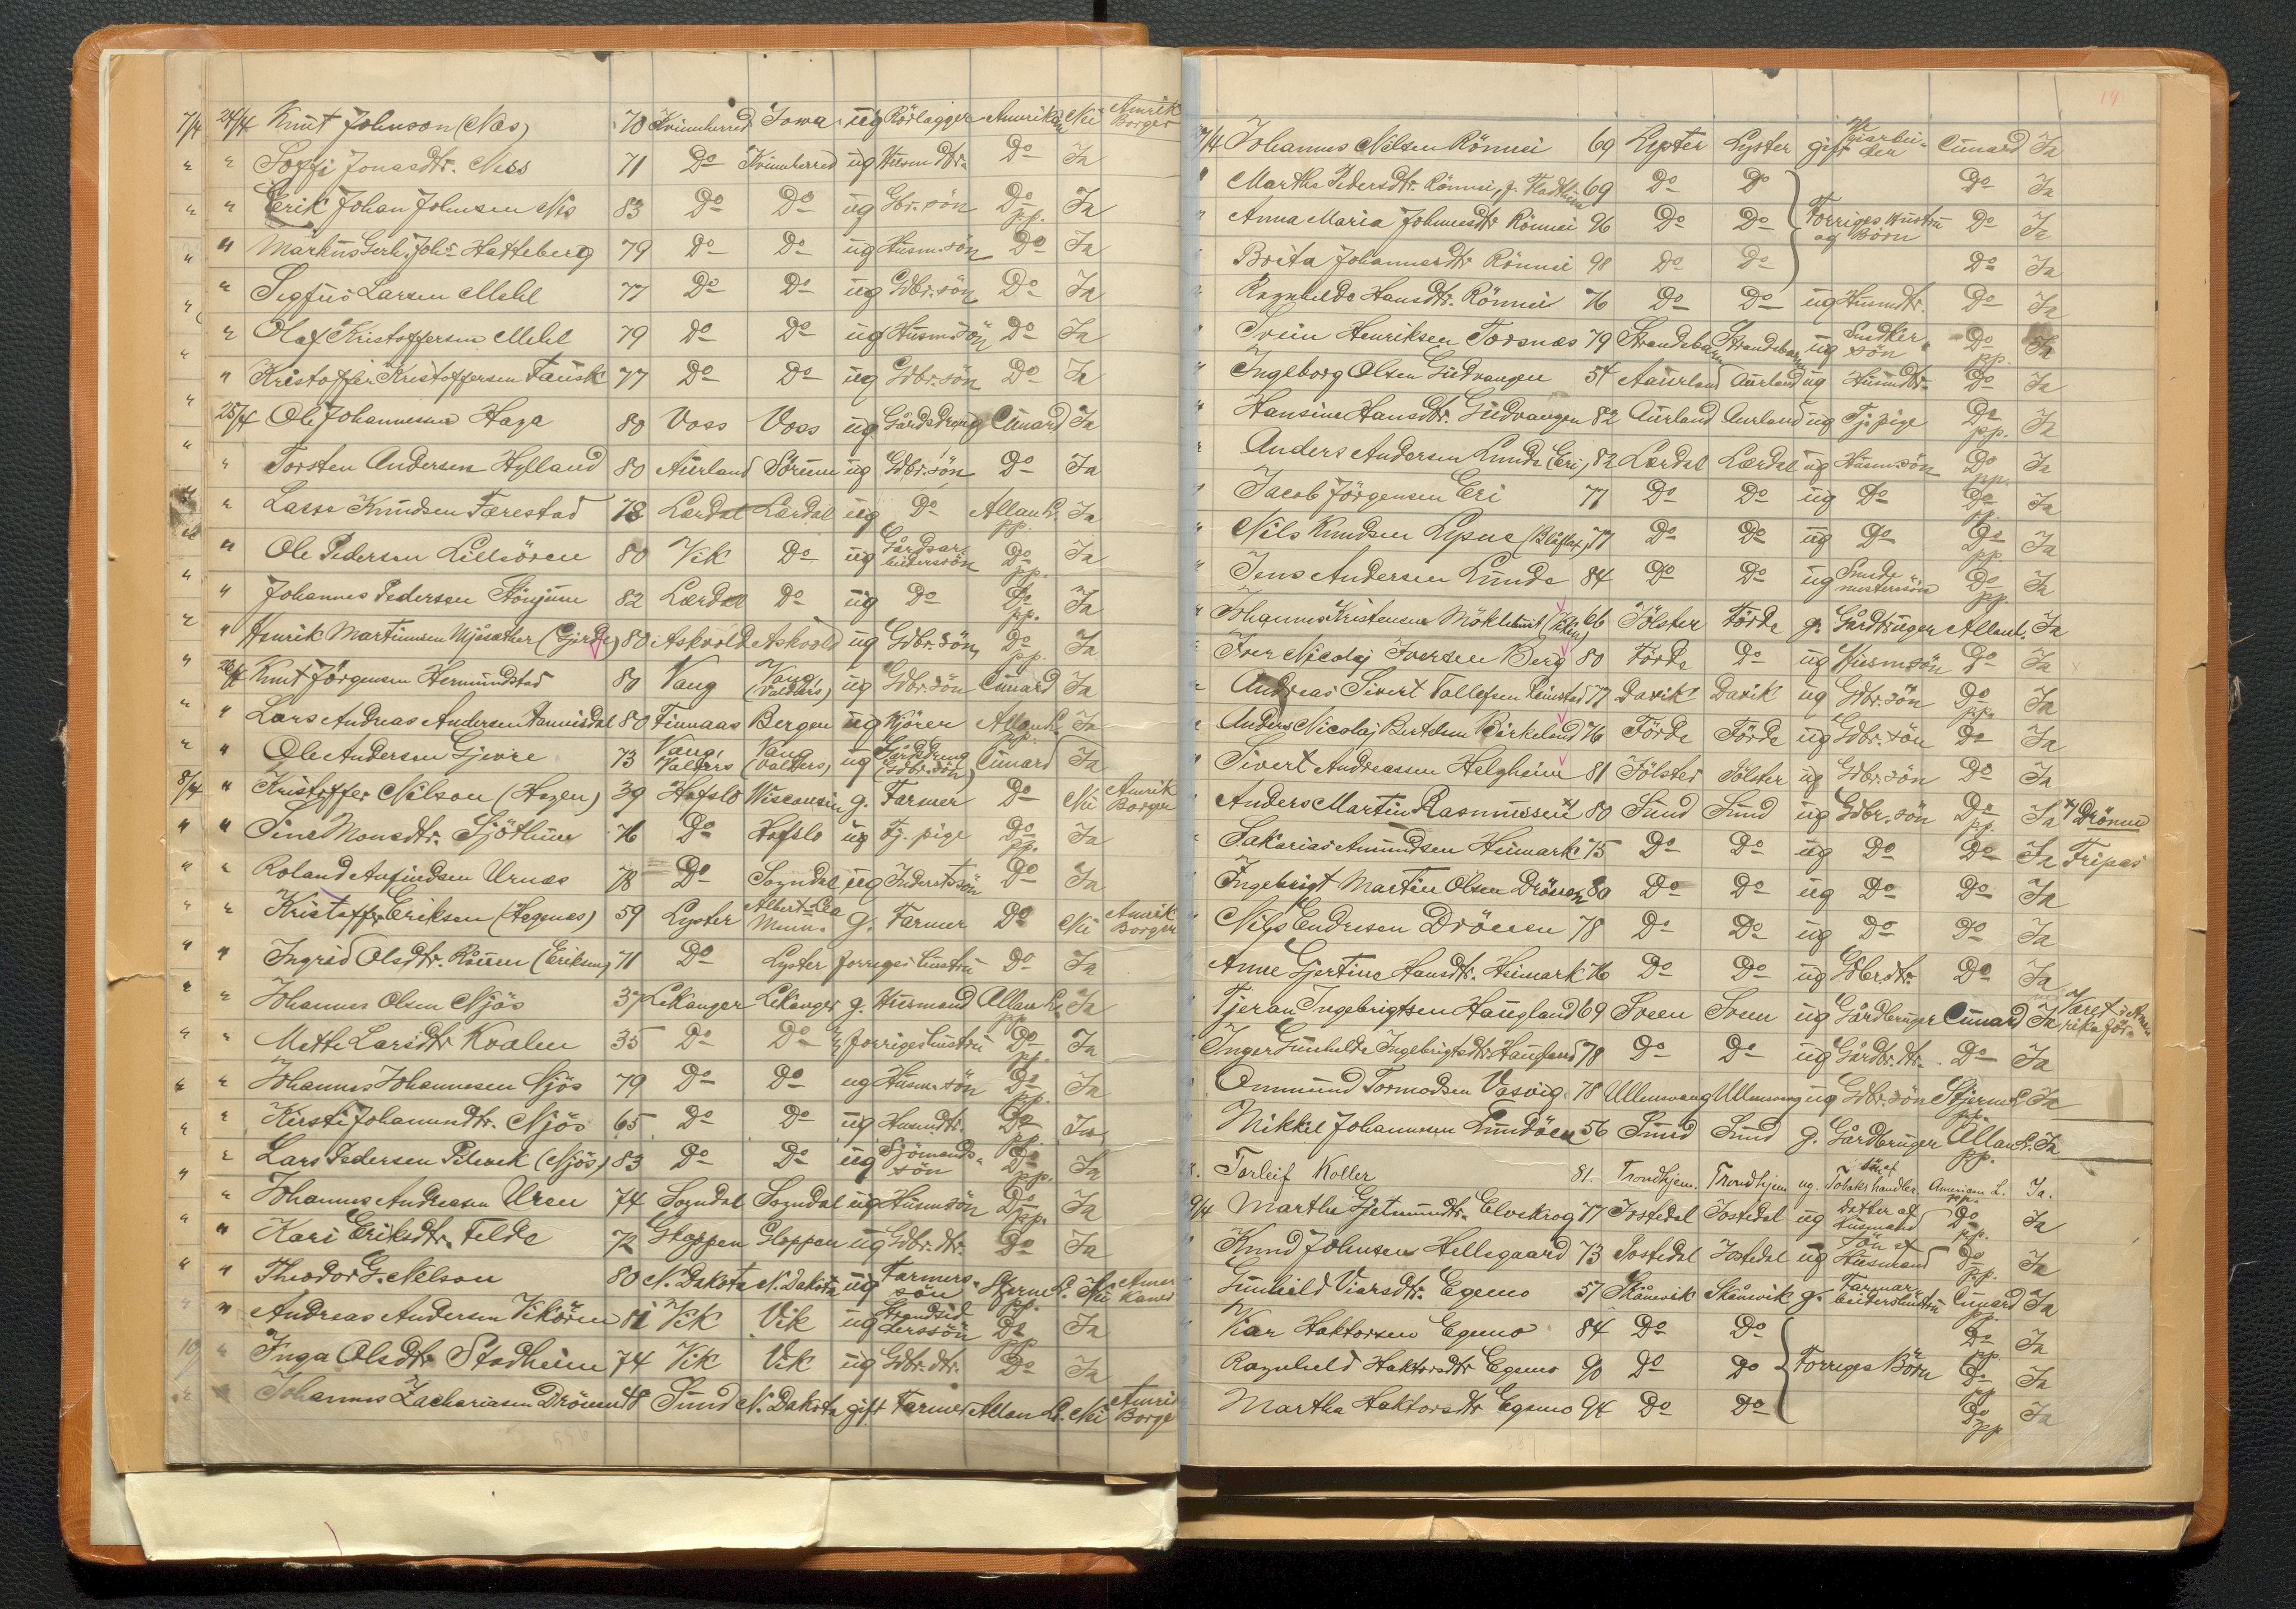 7/4 24/4 Knut Johnson (Næs) 70 Kvinnherred Iowa ug Rörlægger Amerikan Nei Amrik Borger
" " Soffi Jonasdtr. Næss 71 Do Kvinnherred ug Husm dtr. Do Ja
" " Erik Johan Johnsen Næs 83 Do Do ug Gbr. sön Do pp. Ja
" " Markus Gerh. Johs Hatteberg 79 Do Do ug Husm. sön Do Ja
" Sigfus Larsen Mehl 77 Do Do ug Gdbr. sön Do Ja
" " Olaf Kristoffersen Mehl 79 Do Do ug Husm. sön Do Ja
" " Kristoffer Kristoffersen Fausk 77 Do Do ug Gdbr. sön Do Ja
" 25/4 Ole Johannesen Haga 80 Voss Voss ug Gårdsdreng Cunard Ja
" " Torsten Andersen Hylland 80 Aurland Sörum ug Gdbr. sön Do Ja
" " Lasse Knudsen Færestad 78 Lærdal Lærdal ug Do Allan L. pp. Ja
" " Ole Pedersen Lillesören 80 Vik Do ug Gårdsarbeidersön Do pp. Ja
" " Johannes Pedersen Stönjum 82 Lærdal Do ug Do Do pp. Ja
" " Henrik Martinusen Mjåsæther (Gjerde) 80 Askvold Askvold ug Gdbr. sön Do pp. Ja
" 26/4 Knut Jörgensen Hermundstad 80 Vang Vang (Valders) ug Gdbr. sön Cunard Ja
" " Lars Andreas Andersen 80 Finnaas Bergen ug Kjörer Allan L. pp. Ja
" " Ole Andersen Gjevre 73 Vang, Valders Vang (Valders) ug Gårdsdreng (Gdbr. sön) Cunard Ja
8/4 " Kristoffer Nilson (Hagen) 39 Hafslo Wisconsin g. Farmer Do Nei Amrik Borger
" " Sine Monsdtr. Sjöthun 76 Do Hafslo ug Tj. pige Do pp. Ja
" " Roland Anfindsen Urnæs 78 Do Sogndal ug Inderstsön Do Ja
" " Kristoffer Eriksen (Hegenæs) 59 Lyster Albert Lea Minn. g. Farmer Do Nei Amrik Borger
" " Ingrid Olsdtr. (Eriksen) 71 Do Lyster forriges hustru Do Ja
" " Johannes Olsen Njös 37 Lekanger Lekanger g. Husmand Allan L. pp. Ja
" " Mette Larsdtr Kvalen 35 Do Do forriges hustru Do pp. Ja
" " Johannes Johannesen Njös 79 Do Do ug Husm. sön Do pp. Ja
" " Kirsti Johannesdtr. Njös 65 Do Do ug Husmdtr. Do pp. Ja
" " Lars Pedersen (Njös) 83 Do Do ug Sjömandssön Do pp. Ja
" " Johannes Andreasen Uren 74 Sogndal Sogndal ug Husmsön Do pp. Ja
" " Kari Eriksdtr. Felde 72 Gloppen Gloppen ug Gdbr. dtr. Do Ja
" " Theodor G. Nelson 80 N. Dakota N. Dakota ug Farmersön Stjerne L. pp. Nei Amerikaner
" " Andreas Andersen Vikören 81 Vik Vik ug Strandsidderssön Do pp. Ja
10 " Inga Olsdtr. Stadheim 74 Vik Vik ug Gdbr. dtr. Do Ja
" " Johannes Zachariasen Drönen 48 Sund N. Dakota gift Farmer Allan L. Nei Amrik Borger
19
9/4 Johannes Nilsen Rönnei 69 Lyster Lyster gift Veiarbeider Cunard Ja
" Martha Pedersdtr. Rönnei, f. 69 Do Do Do Ja
" Anna Maria Johannesdtr Rönnei 96 Do Do Forriges hustru og Börn Do Ja
Brita Johannesdtr Rönnei 98 Do Do Do Ja
" Ragnhilde Hansdtr. Rönnei 76 Do Do ug Husmdtr. Do Ja
" Svein Henriksen Torsnæs 79 Strandebarm Strandebarm ug Snedkersön Do pp. Ja
" Ingeborg Olsen Gudvangen 54 Aaurland Aurland ug Husmdtr. Do Ja
" Hansine Hansdtr. Gudvangen 82 Aurland Aurland ug Tj. pige Do pp. Ja
" Anders Andersen Lunde (Eri) 82 Lærdal Lærdal ug Husm. sön Do pp. Ja
" Jacob Jörgensen Eri 77 Do Do ug Do Do pp. Ja
" Nils Knudsen Lysne (Blåflat) 77 Do Do ug Do Do pp. Ja
" Jens Andersen Lunde 84 Do Do ug Smedemestersön Do pp. Ja
" Johannes Kristensen 66 Jölster Förde g. Gårdbruger Allanl. Ja
" Iver Nicolaj Iversen Berg 80 Förde Do ug Husmsön Do Ja
" Andreas Sivert Tollefsen 77 Davik Davik ug Gdbr. sön Do pp. Ja
" Anders Nicolaj Bertelsen Birkeland 76 Förde Förde ug Gdbr. sön Do Ja
" Sivert Andreassen Helgheim 81 Jölster Jölster ug Gdbr. sön Do Ja
" Anders Martin Rasmussen x) 80 Sund Sund ug Gdbr. sön Do pp. Ja x) Drönen
" Sakarias Amundsen Heimark 75 Do Do ug Do Do Ja Fripas
" Ingebrigt Martin Olsen Drönen 80 Do Do ug Do Do Ja
" Nils Endresen Drönen 78 Do Do ug Do Do Ja
" Anne Gjertine Hansdtr. Heimark 76 Do Do ug Gdbr. dtr. Do Ja
" Tjeran Ingebrigtsen Haugland 69 Sveen Sveen ug Gårdbruger Cunard Ja Været i Amerika för
" Inger Gunhilde Ingebrigtsdtr. Haugland 78 Do Do ug Gårdbr. dtr. Do Ja
Ommund Tormodsen Vasvig 78 Ullensvang Ullensvang ug Gdbr. sön Stjernel. pp. Ja
Mikkel Johannesen Lundöen 56 Sund Sund g. Gårdbruger Allan L. pp. Ja
8. Torleif Koller 81. Trondhjem. Trondhjem ug. sön af Tobakshandler American L. pp. Ja.
9/4 Marthe Gjetmundtr. Elvekrog 77 Jostedal Jostedal ug Datter af Husmand Do pp. Ja
" Knud Johnsen Hellegaard 73 Jostedal Jostedal ug Sön af Husmand Do pp. Ja
" Gunhild Viarsdtr. Egemo 57 Skånevik Skånevik g. Cunard pp. Ja
" Viar Haktorsen Egemo 84 Do Do Do pp. Ja
" Ragnhild Haktorsdtr Egemo 90 Do Do Forriges Börn Do pp. Ja
" Martha Haktorsdtr Egemo 94 Do Do Do pp Ja